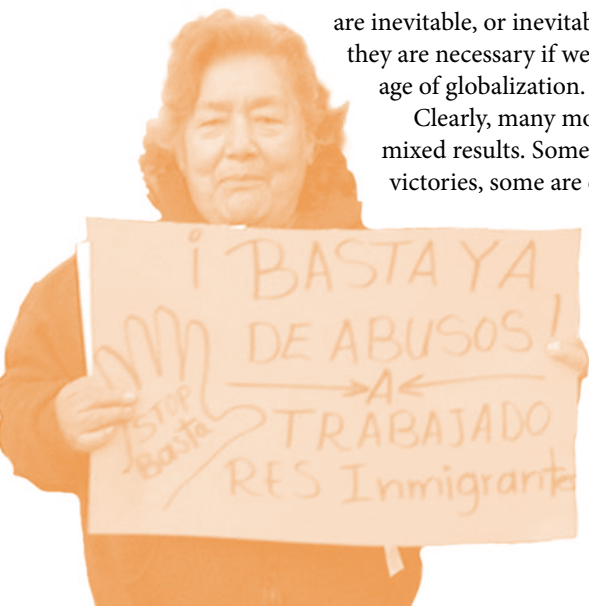 are inevitable, or inevitab
they are necessary if we
age of globalization.
Clearly, many mo
mixed results. Some
victories, some are
¡ BASTA YA
DE ABUSOS!
A
TRABAJADO
RES Inmigrante
STOP
Basta